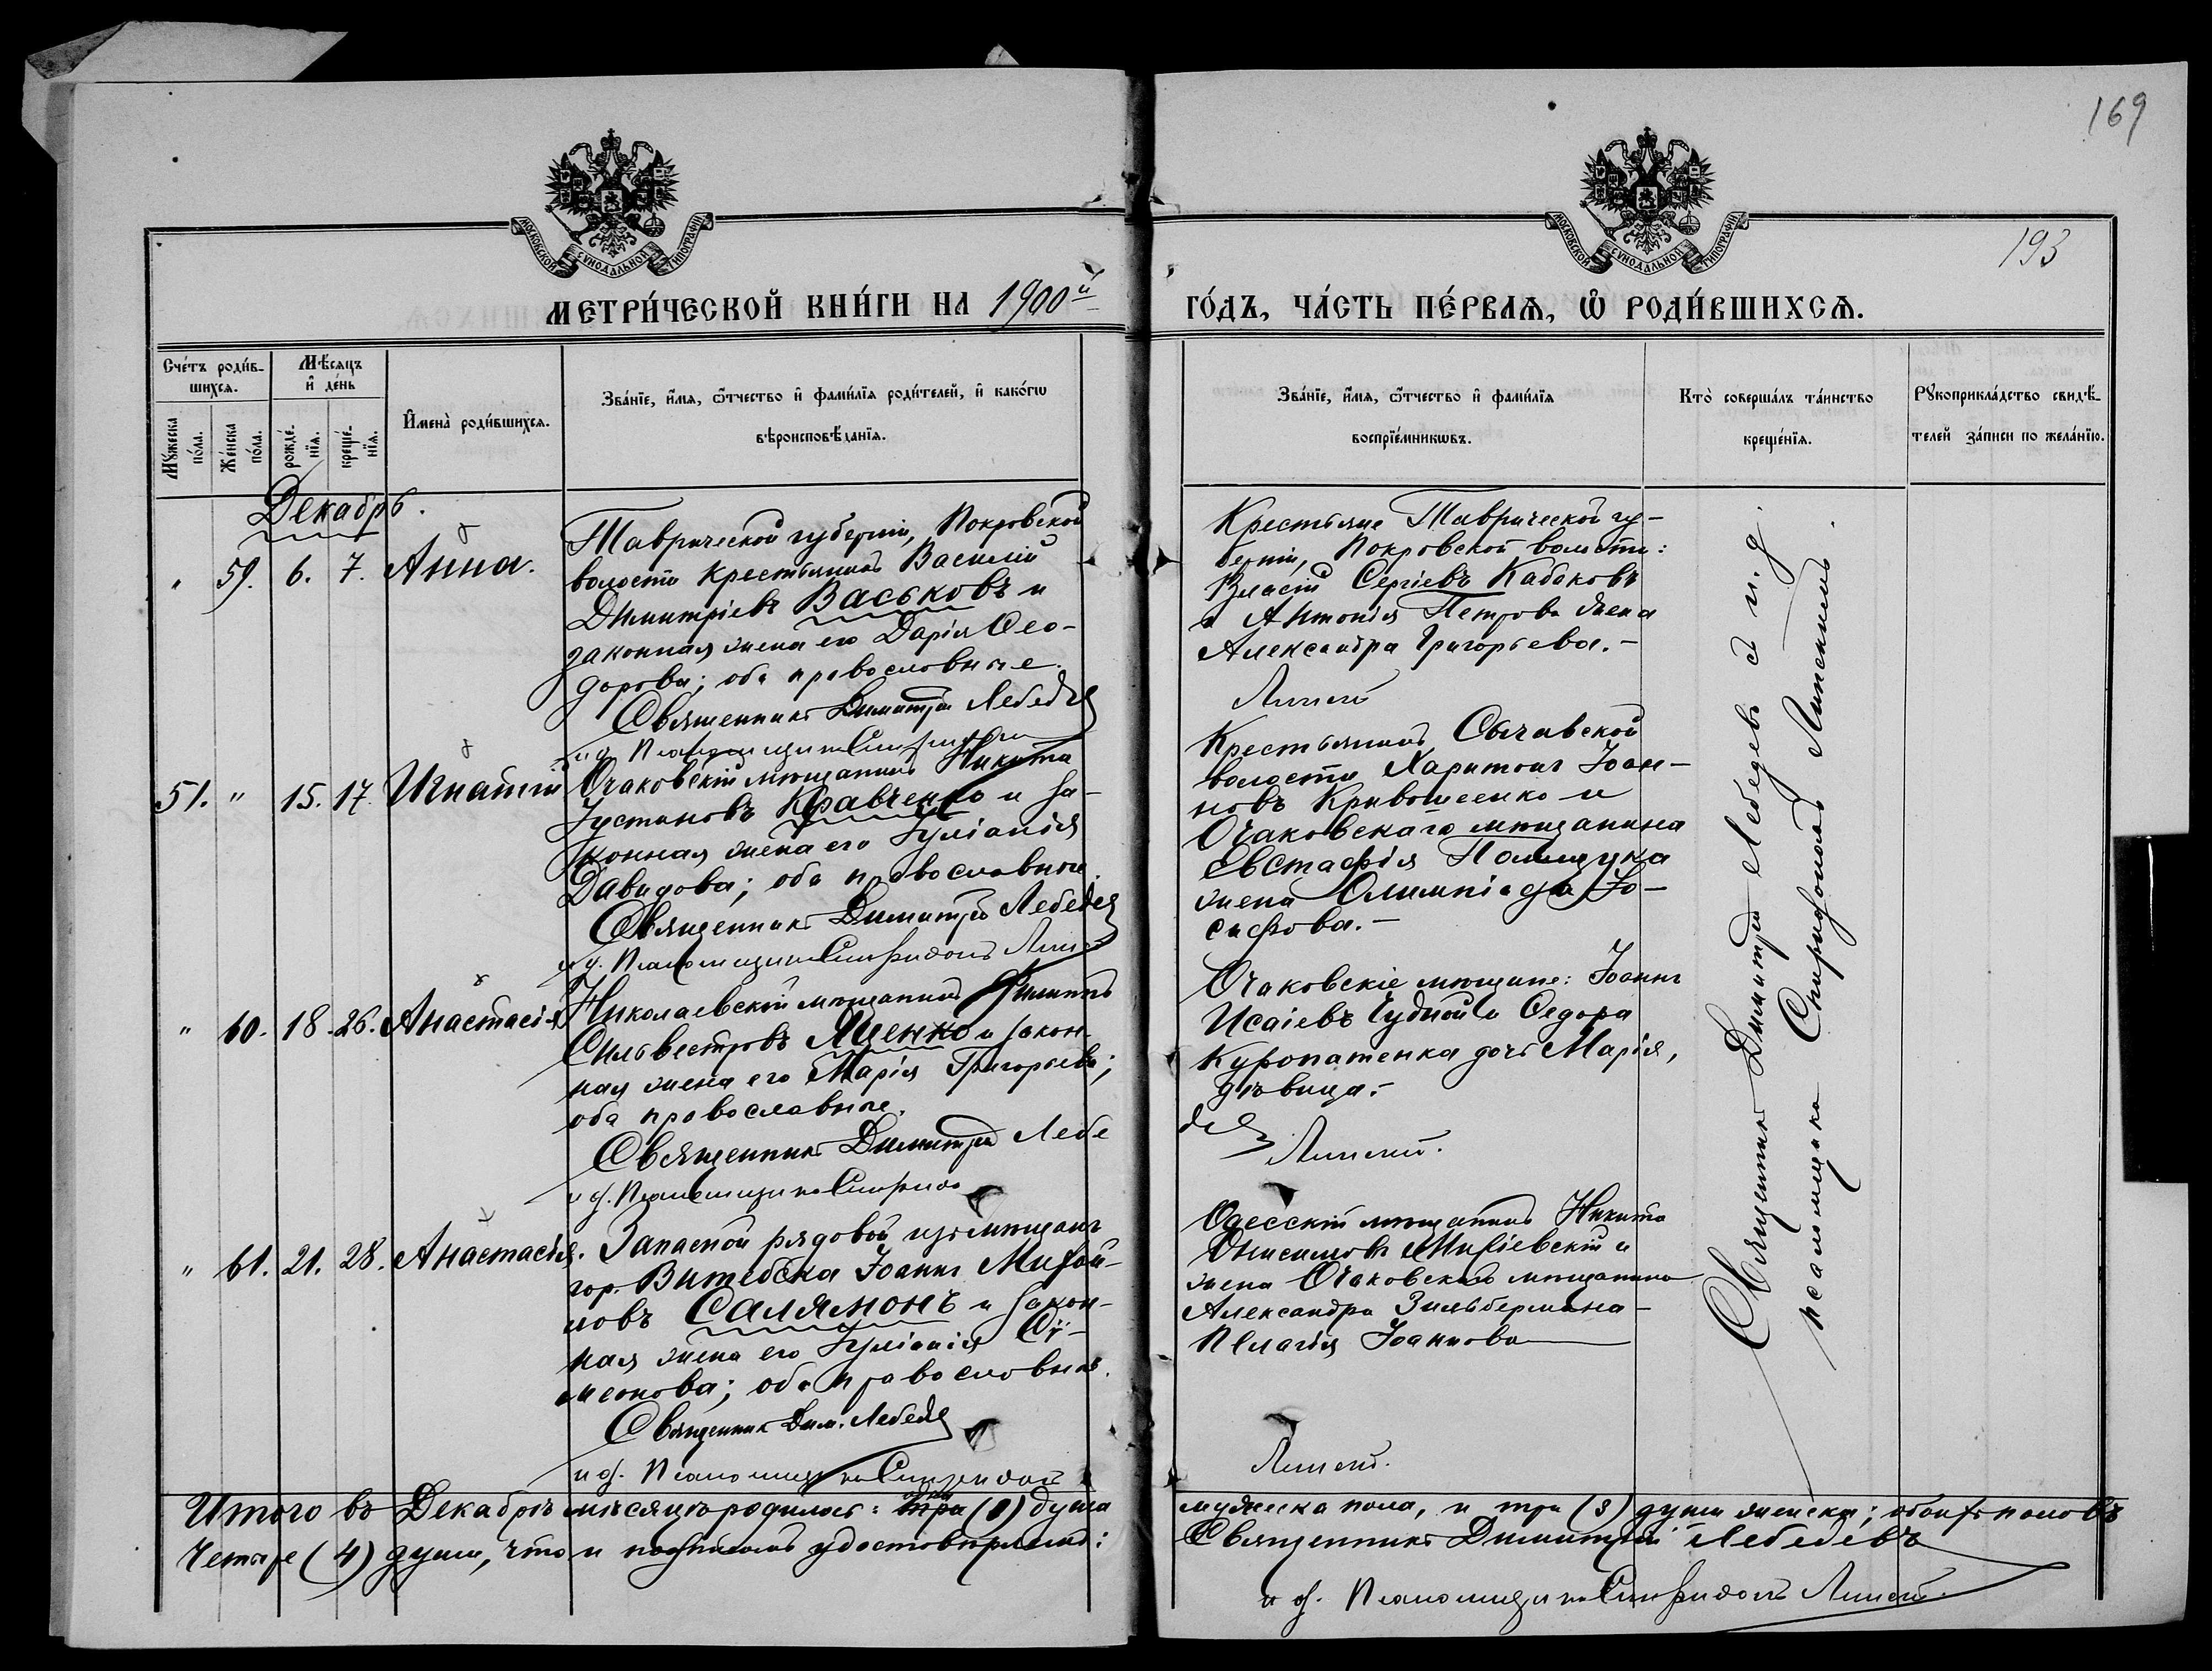 169
193
МОСКОВСКОЙ СУНОДАЛЬНОЙ ТИПОГРАФІИ
МОСКОВСКОЙ СУНОДАЛЬНОЙ ТИПОГРАФІИ
МЕТРИ́ЧЕСКОЙ КНИ́ГИ НА 1900й
ГО́ДЪ, ЧА́СТЬ ПЕ́РВАѦ, Ѡ РОДИ́ВШИХСѦ.
Сче́тъ роди́в-
шихсѧ.
Мꙋжеска по́ла.
Же́нска по́ла.
Мѣ́сяцъ
и҆ де́нь
рожде́-
нїѧ.
креще́-
нїѧ.
И҆мена̀ роди́вшихсѧ.
Зва́нїе, и҆́мѧ, ѻ҆́тчество и҆ фами́лїѧ роди́телей, и҆ како́гѡ
вѣроисповѣ́данїѧ.
Зва́нїе, и҆́мѧ, ѻ҆́тчество и҆ фами́лїѧ
воспрїе́мникѡвъ.
Кто̀ соверша́лъ та́инство
креще́нїѧ.
Рꙋкоприкла́дство свидѣ́-
телей за́писи по жела́нїю.
Декабрь.
" 59. 6. 7. Анна.
Таврической губерніи, Покровской
волости крестьянинъ Василій
Димитріевъ Васьковъ и
законная жена его Дарія Ѳео-
дорова; оба православные.
Священникъ Димитрій Лебедевъ
и д. Псаломщика Спиридонъ
Крестьяне Таврической гу-
берніи, Покровской волости:
Власій Сергіевъ Кабаковъ
и Антонія Петрова жена
Александра Григорьева.-
51. " 15. 17. Игнатій
Очаковскій мѣщанинъ Никита
Іустиновъ Кравченко и за-
конная жена его Іуліанія
Давидова; оба православные.
Священникъ Димитрій Лебедевъ
и д. Псаломщика Спиридонъ
Крестьянинъ Сычавской
волости Харитонъ Іоан-
новъ Кривошеенко и
Очаковскаго мѣщанина
Евстафія Полищука
жена Олимпіада Іо-
сифова.-
" 60. 18. 26. Анастасія
Николаевскій мѣщанинъ Филиппъ
Сильвестровъ Яценко и закон-
ная жена его Марія Григорьева;
оба православные.
Священникъ Димитрій Лебе
и д. Псаломщика Спиридо
Очаковскіе мѣщане: Іоаннъ
Исаіевъ Чудной и Ѳедора
Куропатенка дочь Марія,
дѣвица.-
" 61. 21. 28. Анастасія.
Запасной рядовой изъ мѣщанъ
гор. Витебска Іоаннъ
новъ Салямонъ и закон-
ная жена его Іуліанія Сѵ-
меонова; оба православные.
Священникъ Дим. Лебедевъ
и д. Псаломщика Спиридонъ
Одесскій мѣщанинъ Никита
Онисимовъ и
жена Очаковскаго мѣщанина
Александра Зильбермана-
Пелагія Іоаннова
Священникъ Димитрій Лебедевъ съ и. д.
псаломщика Спиридономъ
Итого въ Декабрѣ мѣсяцѣ родилось: одна (1) душа
мужеска пола, и три (3) души женска; обоихъ половъ
четыре (4) души, что и подписомъ удостовѣряемъ:
Священникъ Димитрій Лебедевъ
и д. Псаломщика Спиридонъ